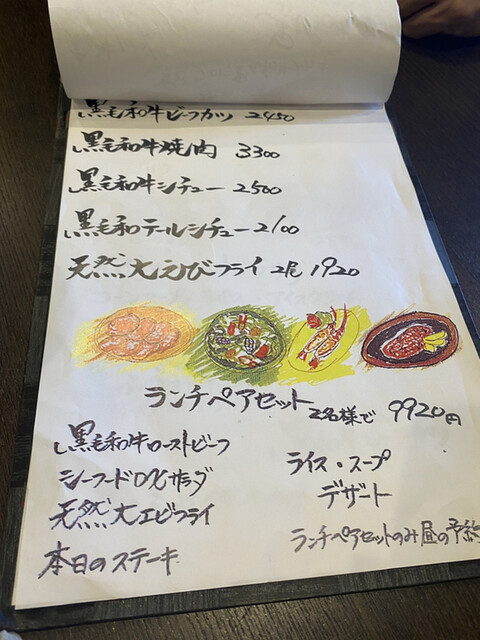 黒毛和牛ビーフカツ 2450
黒毛和牛焼肉 3300
黒毛和牛シチュー 2500
黒毛和テールシチュー 2100
天然大えびフライ 2尾 1920
ランチペアセット 2名様で 9920円
黒毛和牛ローストビーフ
シーフードDXサラダ
天然大エビフライ
本日のステーキ
ライス・スープ
デザート
ランチペアセットのみ昼の予約